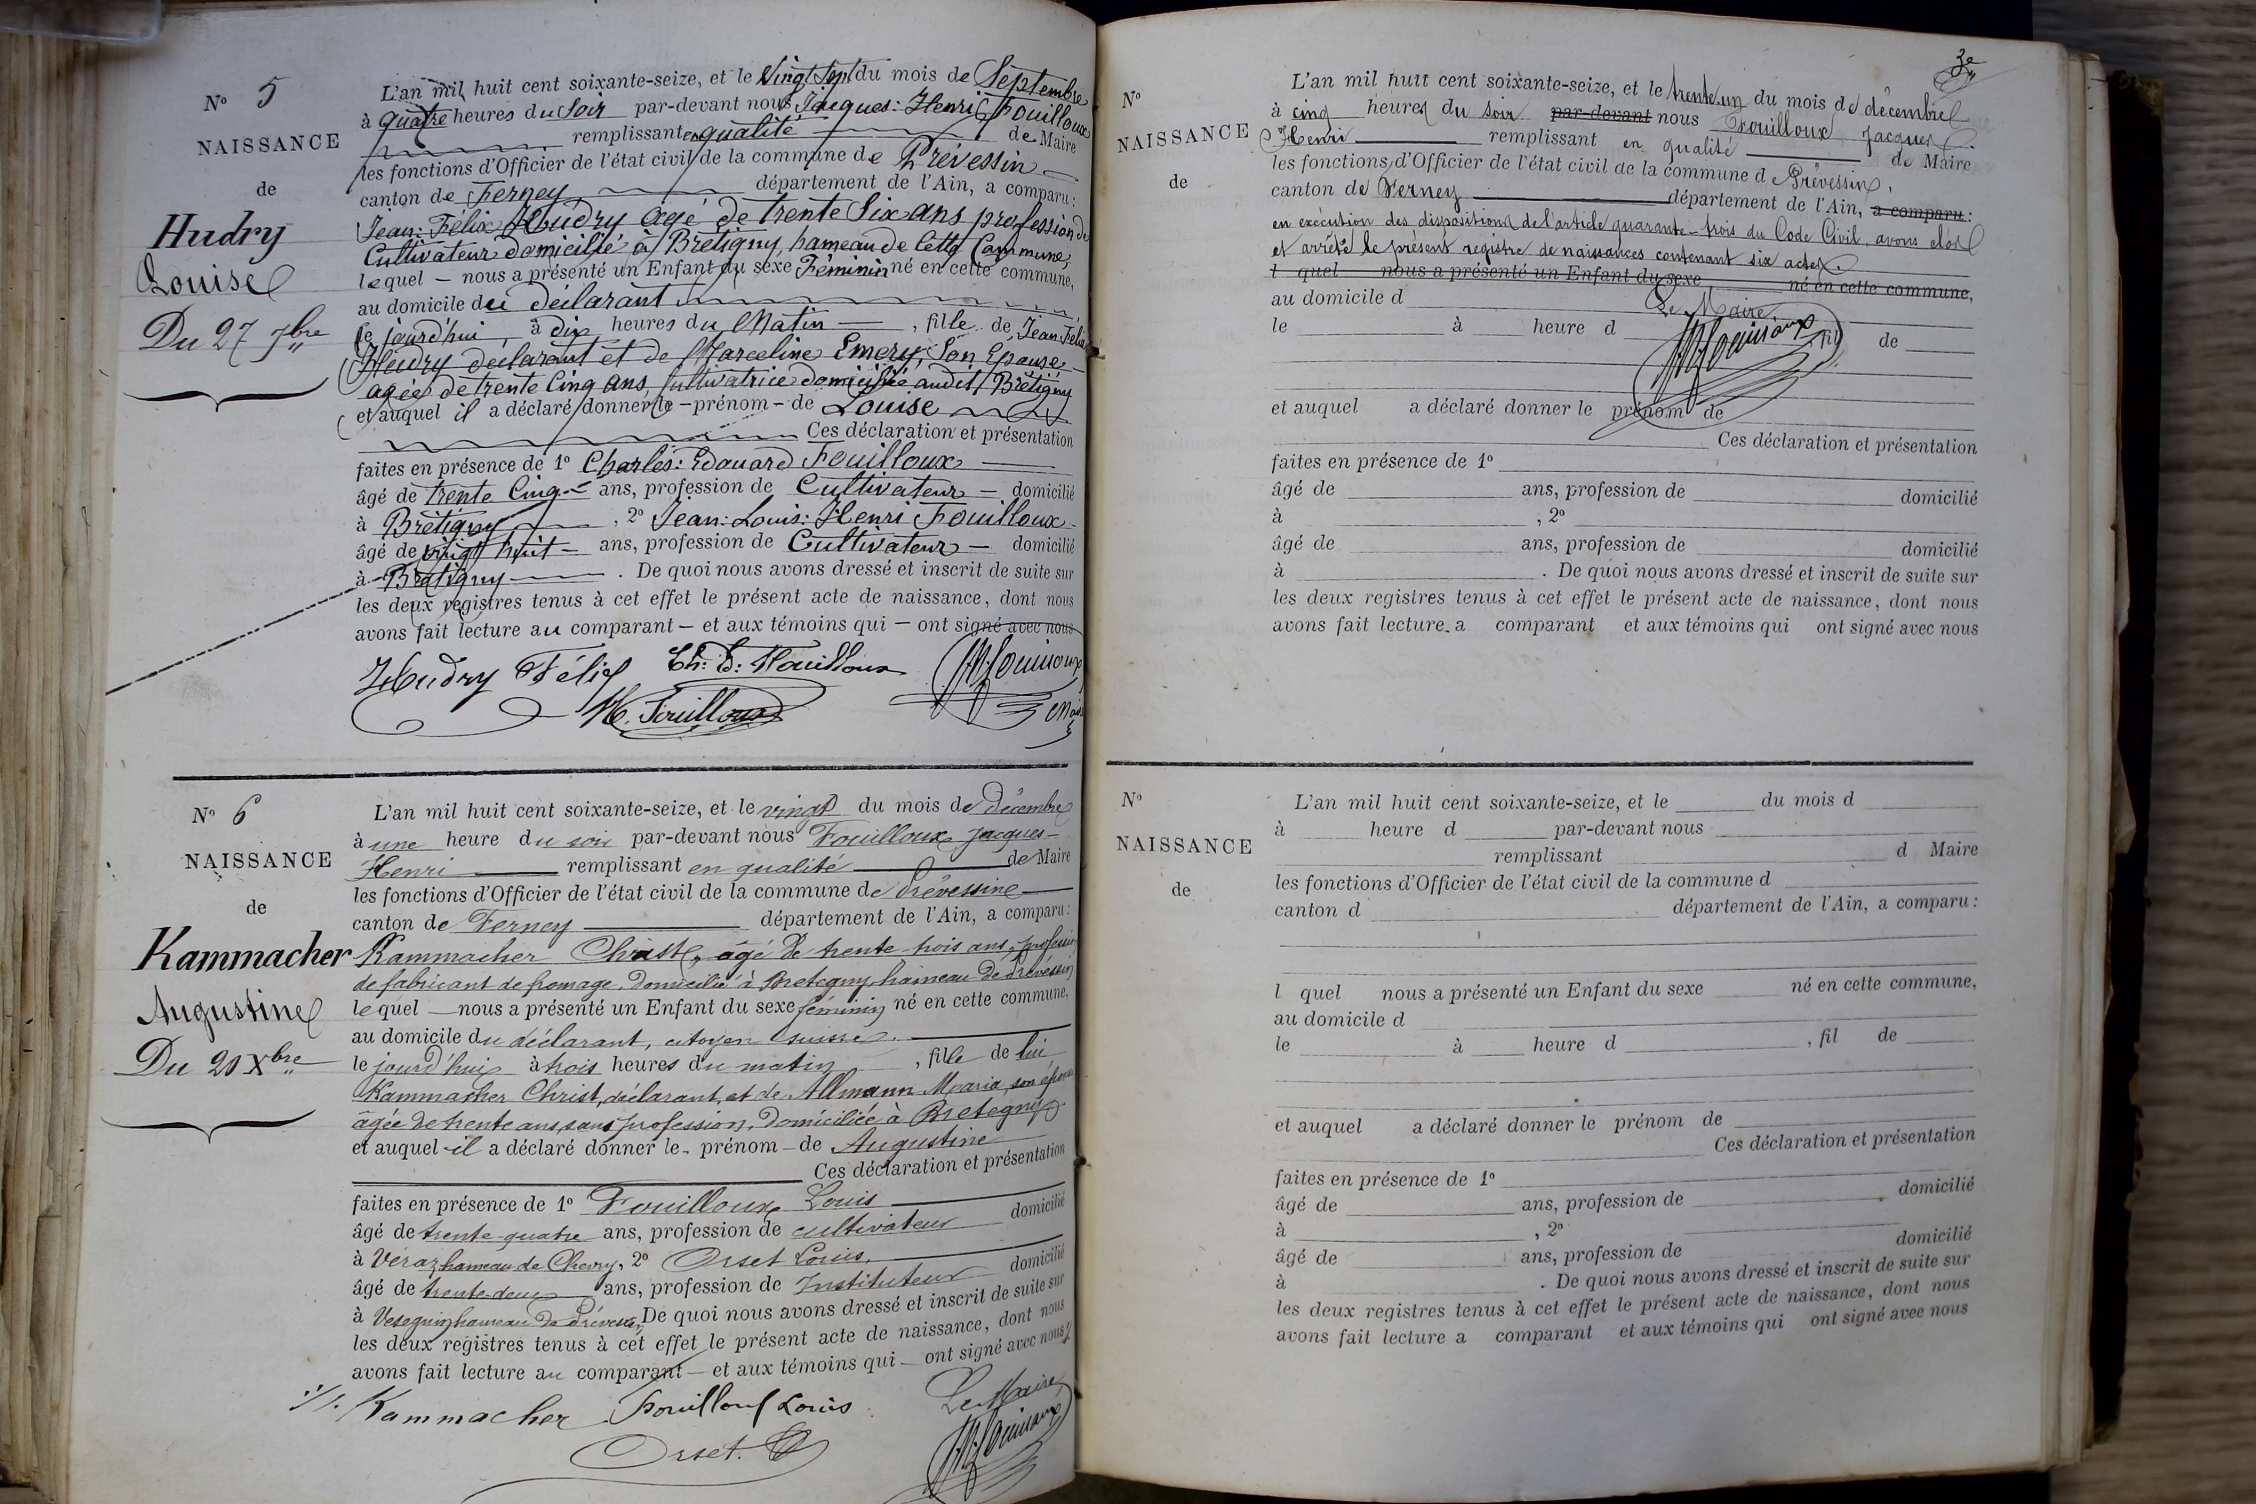 N° 5
NAISSANCE
de
Hudry
Louise
Du 27 7bre
L'an mil huit cent soixante-seize, et le Vingt Sept du mois de Septembre
à quatre heures du Soir par-devant nous Jacques: Henri Fouilloux
remplissant en qualité de Maire
les fonctions d'Officier de l'état civil de la commune de Prévessin
canton de Ferney département de l'Ain, a comparu:
Jean: Félix Hudry agé de trente Six ans profession de
Cultivateur domicilié à Brétigny hameau de Cette Commune,
lequel — nous a présenté un Enfant du sexe Féminin né en cette commune,
au domicile du déclarant
Ce jourd'hui, à dix heures du Matin, fille de Jean Félix
Heudry declarant et de Marceline Emery, Son Epouse
agée de trente Cinq ans, Cultivatrice domiciliée audit Brétigny
et auquel il a déclaré donner le - prénom - de Louise
Ces déclaration et présentation
faites en présence de 1° Charles: Edouard Fouilloux
âgé de trente Cinq ans, profession de Cultivateur — domicilié
à Brétigny, 2° Jean: Louis: Henri Fouilloux
âgé de vingt huit — ans, profession de Cultivateur — domicilié
à Brétigny. De quoi nous avons dressé et inscrit de suite sur
les deux registres tenus à cet effet le présent acte de naissance, dont nous
avons fait lecture au comparant — et aux témoins qui — ont signé avec nous
Hudry Félix Ch: E: Fouilloux
H. Fouilloux
N° 6
NAISSANCE
de
Kammacher
Augustine
Du 20 Xbre
L'an mil huit cent soixante-seize, et le vingt du mois de Décembre
à une heure du soir par-devant nous Fouilloux Jacques-
Henri remplissant en qualité de Maire
les fonctions d'Officier de l'état civil de la commune de Prévessin
canton de Ferney département de l'Ain, a comparu:
Kammacher Christ, âgé de trente-trois ans, profession
de fabricant de fromage, Domicilié à Bretegny hameau de Prévessin
lequel — nous a présenté un Enfant du sexe féminin né en cette commune,
au domicile du déclarant, citoyen suisse.
le jourd'hui à trois heures du matin, fille de lui
Kammacher Christ, déclarant, et de Allmann Maria, son épouse
âgée de trente ans, sans profession, Domiciliée à Bretegny
et auquel il a déclaré donner le - prénom - de Augustine
Ces déclaration et présentation
faites en présence de 1° Fouilloux Louis
âgé de trente-quatre ans, profession de cultivateur domicilié
à Véraz hameau de Chevry, 2° Orset Louis,
âgé de trente-deux ans, profession de Instituteur domicilié
à Vesegnin hameau de Prévessin De quoi nous avons dressé et inscrit de suite sur
les deux registres tenus à cet effet le présent acte de naissance, dont nous
avons fait lecture au comparant — et aux témoins qui — ont signé avec nous
Kammacher Fouilloux Louis Le Maire
Orset.
N°
NAISSANCE
de
L'an mil huit cent soixante-seize, et le trente-un du mois de décembre
à cinq heures du soir par-devant nous Fouilloux Jacques
Henri remplissant en qualité de Maire
les fonctions d'Officier de l'état civil de la commune d Prévessin,
canton de Ferney département de l'Ain, a comparu:
en exécution des dispositions de l'article quarante-trois du Code Civil, avons clos
et arrêté le présent registre de naissances contenant six actes.
l quel nous a présenté un Enfant du sexe né en cette commune,
au domicile d Le Maire
le à heure d , fil de
et auquel a déclaré donner le prénom de
Ces déclaration et présentation
faites en présence de 1°
âgé de ans, profession de domicilié
à , 2°
âgé de ans, profession de domicilié
à . De quoi nous avons dressé et inscrit de suite sur
les deux registres tenus à cet effet le présent acte de naissance, dont nous
avons fait lecture a comparant et aux témoins qui ont signé avec nous
N°
NAISSANCE
de
L'an mil huit cent soixante-seize, et le du mois d
à heure d par-devant nous
remplissant d Maire
les fonctions d'Officier de l'état civil de la commune d
canton d département de l'Ain, a comparu:
l quel nous a présenté un Enfant du sexe né en cette commune,
au domicile d
le à heure d , fil de
et auquel a déclaré donner le prénom de
Ces déclaration et présentation
faites en présence de 1°
âgé de ans, profession de domicilié
à , 2°
âgé de ans, profession de domicilié
à . De quoi nous avons dressé et inscrit de suite sur
les deux registres tenus à cet effet le présent acte de naissance, dont nous
avons fait lecture a comparant et aux témoins qui ont signé avec nous